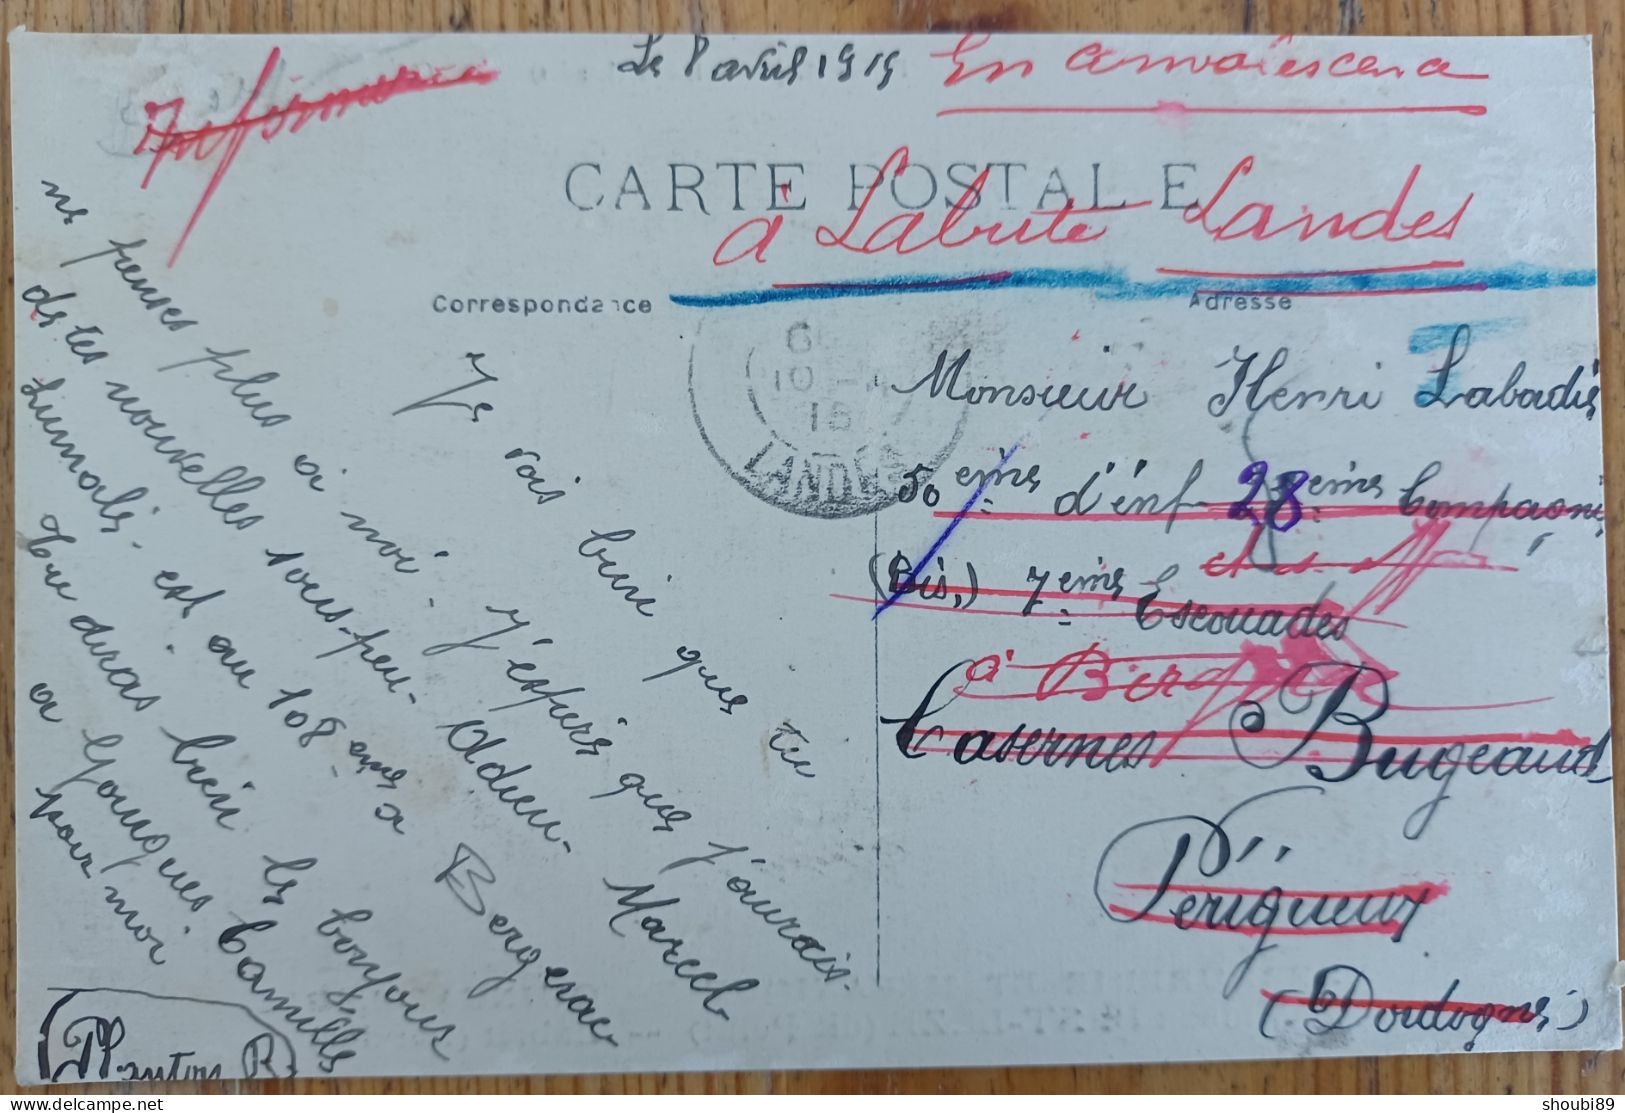 Le 8 avril 1915
En convalescence
Infirmerie
CARTE POSTALE
à Labrite Landes
Correspondance
Adresse
Je vois bien que tu
ne penses plus à moi. J'espère que j'aurais
de tes nouvelles sous-peu. Adieu. Marcel
est au 108 eme à Bergerac
Tu diras bien le bonjour
a Gourgues Camille
pour moi
Monsieur Henri Labadie
50 eme d'inf 28 eme Compagnie
(Bis,) 7 eme Escouades
à
Casernes Bugeaud
Périgueux
(Dordogne)
10
shoubi89